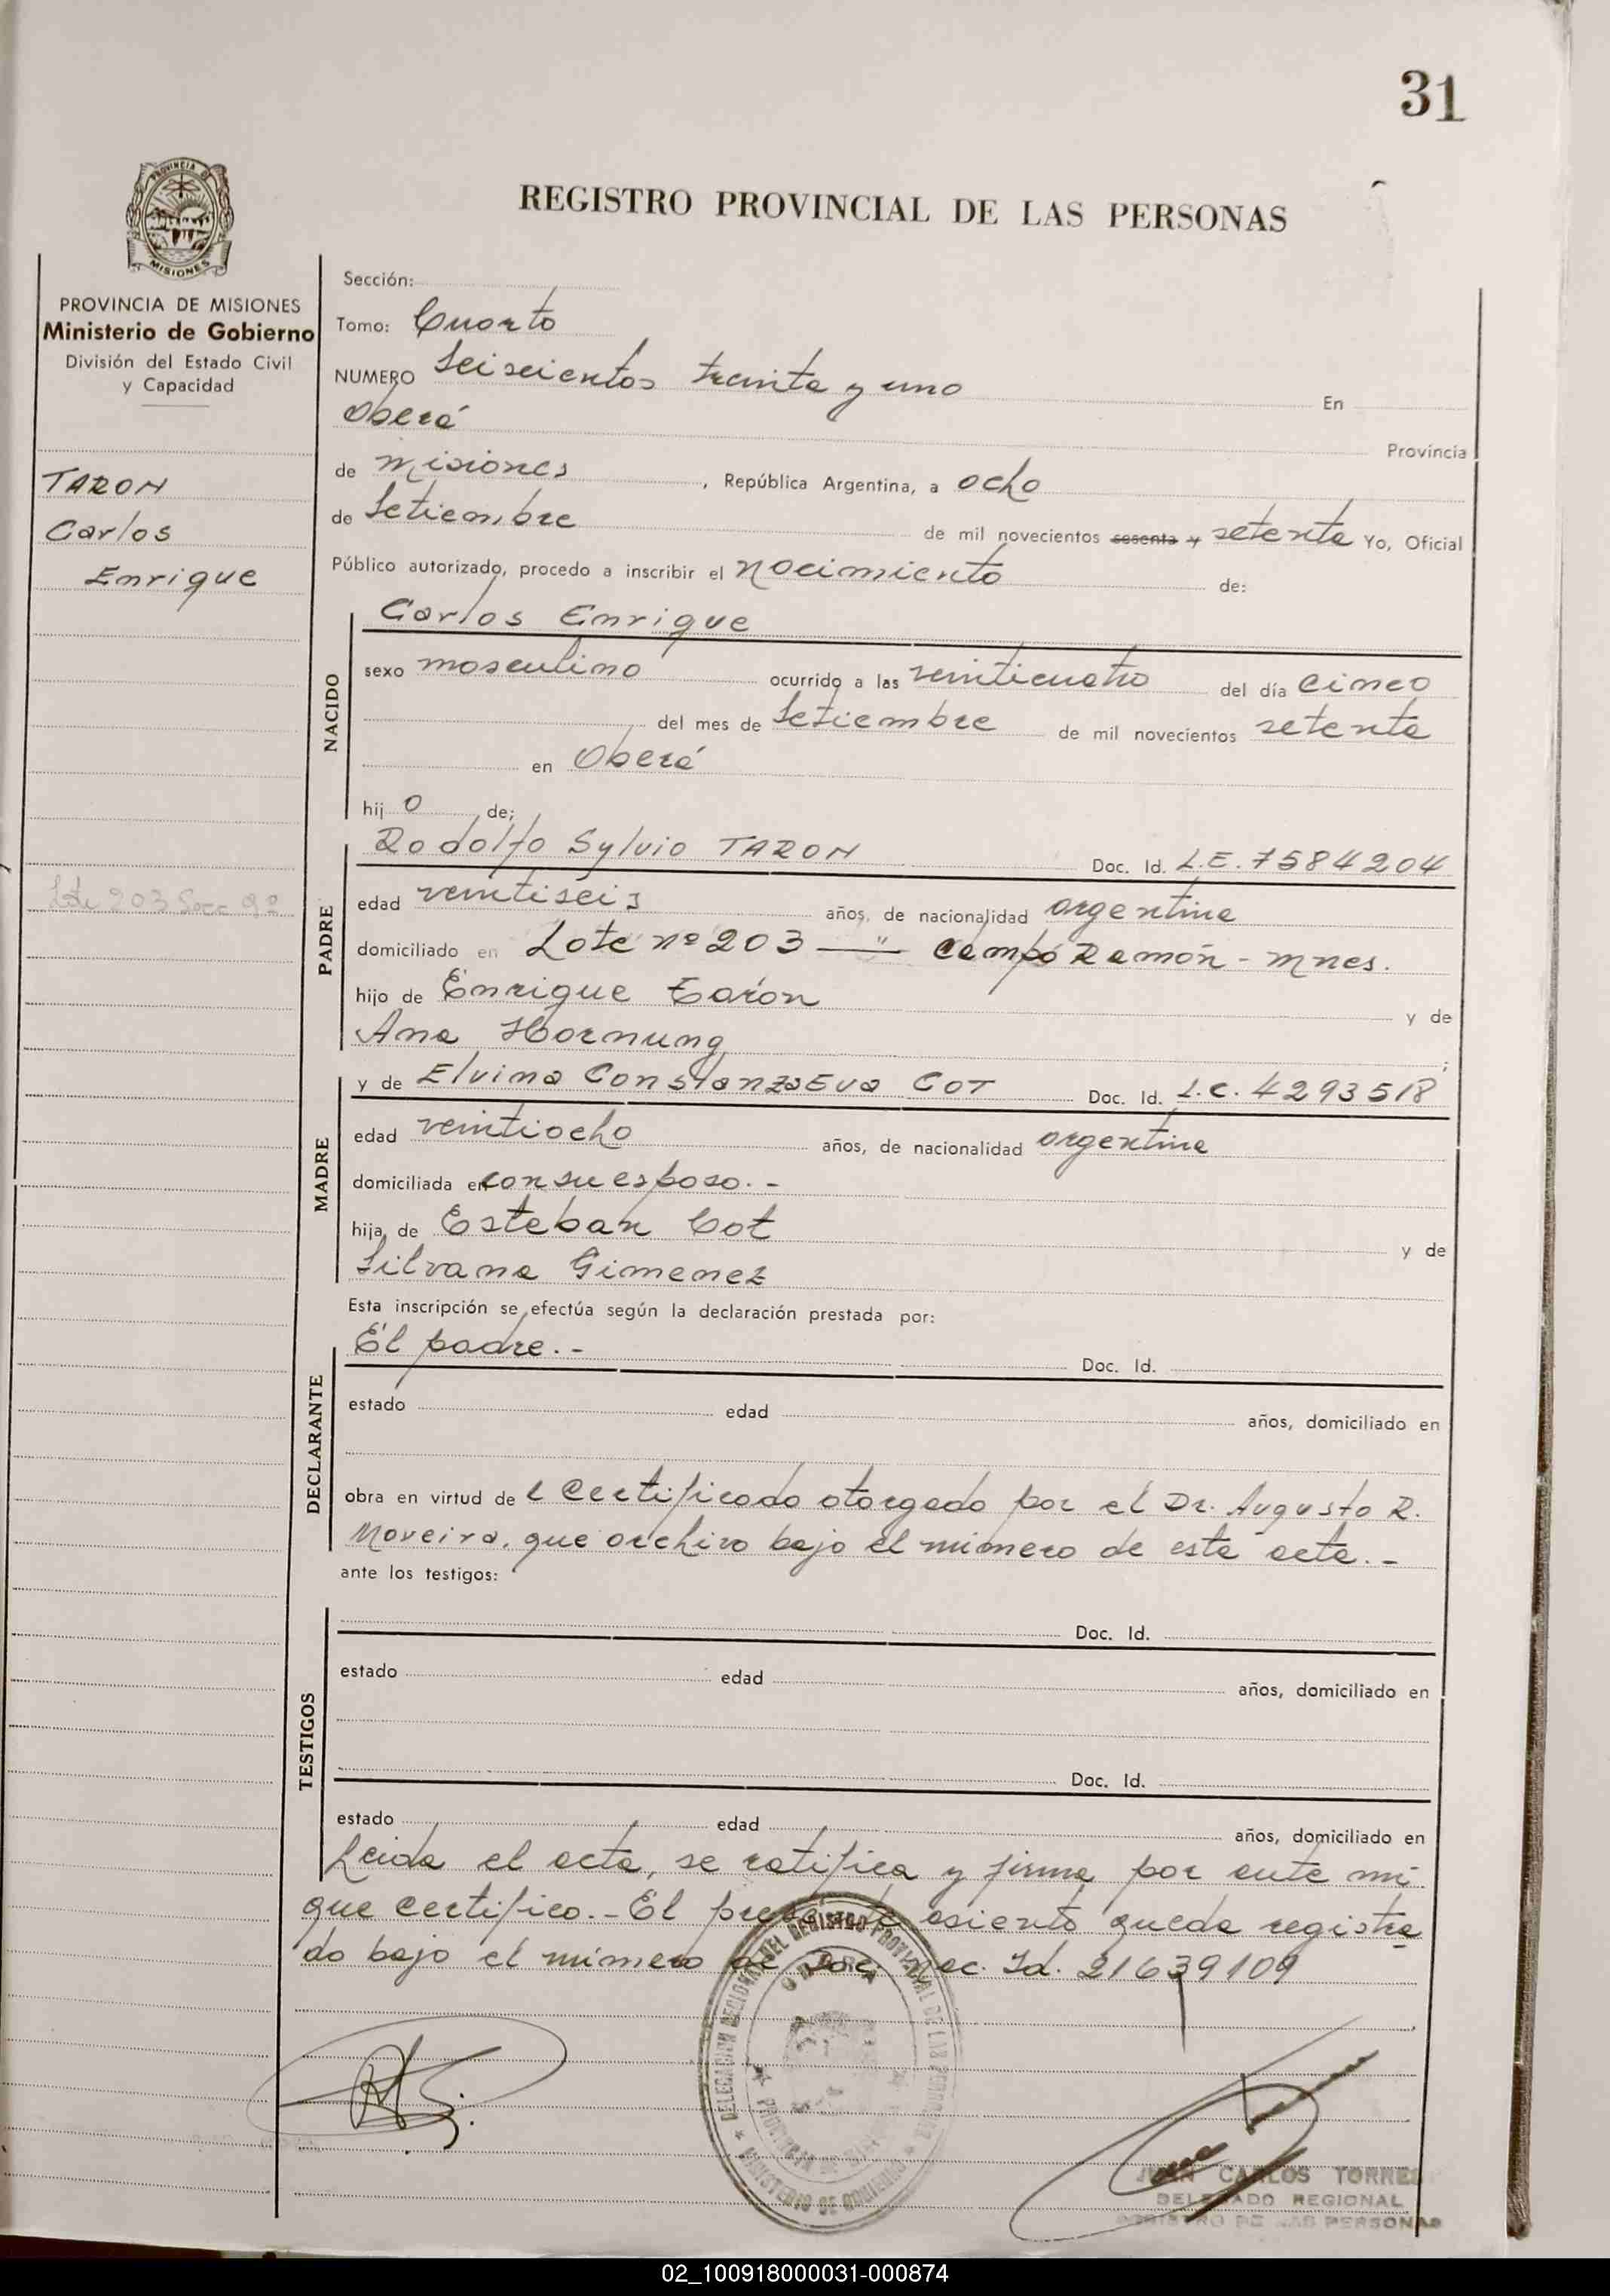 31
PROVINCIA DE
MISIONES
REGISTRO PROVINCIAL DE LAS PERSONAS
PROVINCIA DE MISIONES
Ministerio de Gobierno
División del Estado Civil
y Capacidad
TARON
Carlos
Enrique
Lote 203 Secc 9ª
Sección:
Tomo: Cuarto
NUMERO Seiscientos treinta y uno En
Oberá Provincia
de Misiones, República Argentina, a ocho
de Setiembre de mil novecientos sesenta y setenta Yo, Oficial
Público autorizado, procedo a inscribir el nacimiento de:
NACIDO
Carlos Enrique
sexo masculino ocurrido a las veinticuatro del día cinco
del mes de Setiembre de mil novecientos setenta
en Oberá
hij o de;
PADRE
Rodolfo Sylvio TARON Doc. Id. L.E. 7584204
edad veintiseis años, de nacionalidad argentina
domiciliado en Lote nº 203 — " — Campo Ramón - Mnes.
hijo de Enrique Tarón y de
Ana Hornung ;
MADRE
y de Elvima Constanza Eva COT Doc. Id. L.C. 4293518
edad veintiocho años, de nacionalidad argentina
domiciliada en con su esposo.-
hija de Esteban Cot y de
Silvana Gimenez
Esta inscripción se efectúa según la declaración prestada por:
DECLARANTE
El padre.- Doc. Id.
estado edad años, domiciliado en
obra en virtud de l Certificado otorgado por el Dr. Augusto R.
Moreira, que archivo bajo el número de esta acta.-
ante los testigos:
TESTIGOS
Doc. Id.
estado edad años, domiciliado en
Doc. Id.
estado edad años, domiciliado en
Leida el acta, se ratifica y firma por ante mi
que certifico.- El presente asiento queda registra
do bajo el número de Doc. Nac. Id. 21639109
DELEGACION REGIONAL DEL REGISTRO PROVINCIAL DE LAS PERSONAS
OBERA
PROVINCIA DE MISIONES
MINISTERIO DE GOBIERNO
JUAN CARLOS TORRES
DELEGADO REGIONAL
REGISTRO DE LAS PERSONAS
02_100918000031-000874